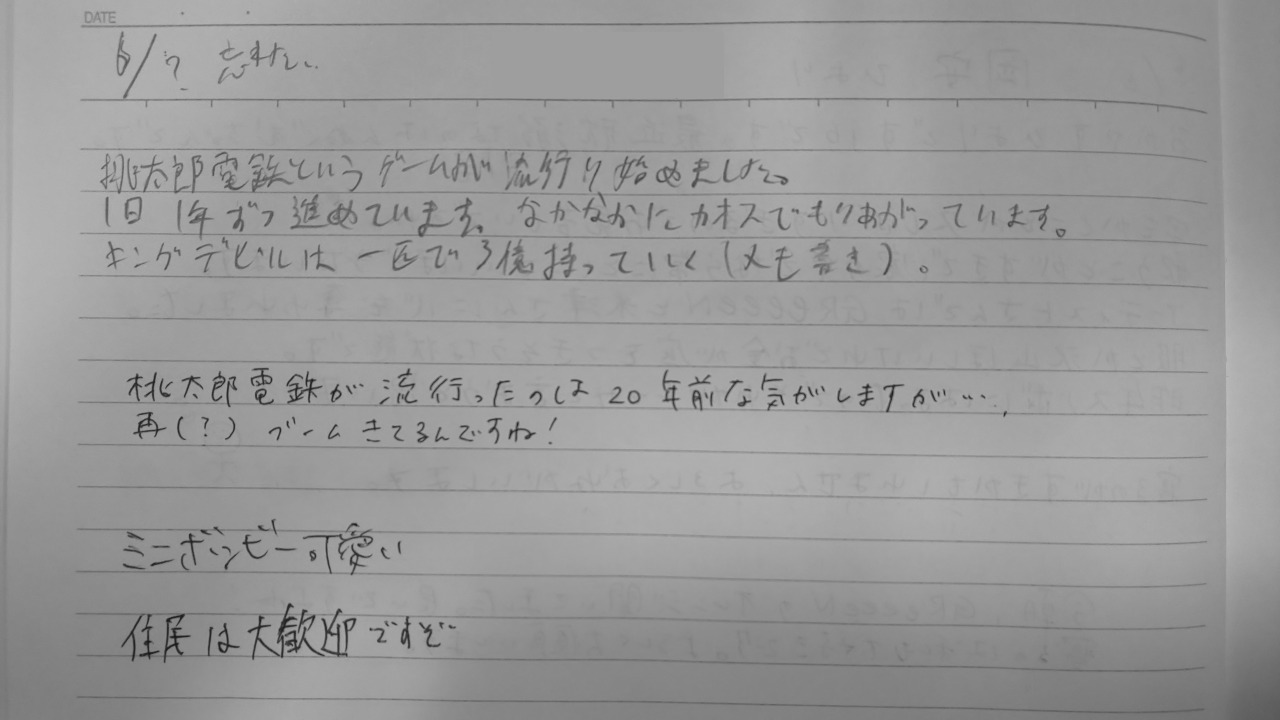 DATE
6/? 忘れた..
桃太郎電鉄というゲームが流行り始めました。
1日 1年ずつ進めています。なかなかにカオスでもりあがっています。
キングデビルは 一匹で 3億持っていく(メモ書き)。
桃太郎電鉄が 流行ったっのは 20年前な気がしますが…..
再(?) ブームきてるんですね!
ミニボンビー可愛い
住民は大歓迎ですぞ